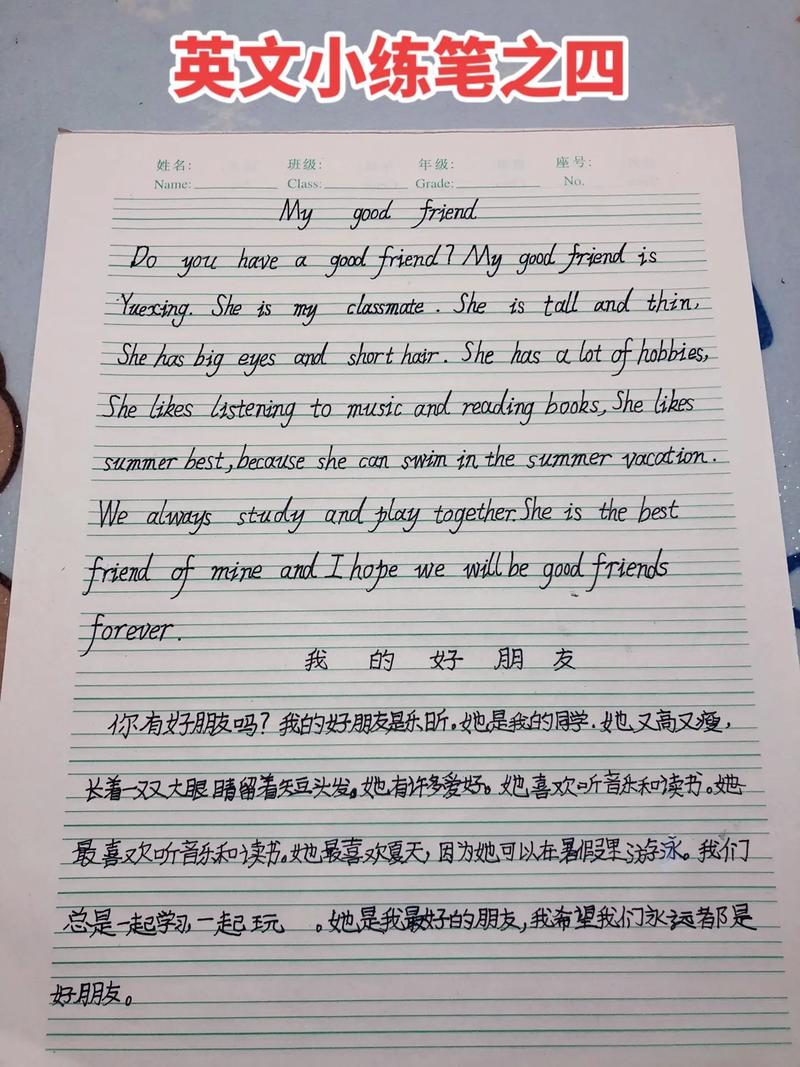 英文小练笔之四
姓名: 班级: 年级: 座号:
Name: Class: Grade: No.
My good friend
Do you have a good friend? My good friend is
Yuexing. She is my classmate. She is tall and thin,
She has big eyes and short hair. She has a lot of hobbies,
She likes listening to music and reading books, She likes
summer best, because she can swim in the summer vacation.
We always study and play together. She is the best
friend of mine and I hope we will be good friends
forever.
我的好朋友
你有好朋友吗? 我的好朋友是乐昕。她是我的同学. 她又高又瘦,
长着一双大眼睛留着短头发。她有许多爱好。她喜欢听音乐和读书。她
最喜欢听音乐和读书。她最喜欢夏天, 因为她可以在暑假里游泳。我们
总是一起学习一起玩 。她是我最好的朋友, 我希望我们永远都是
好朋友。